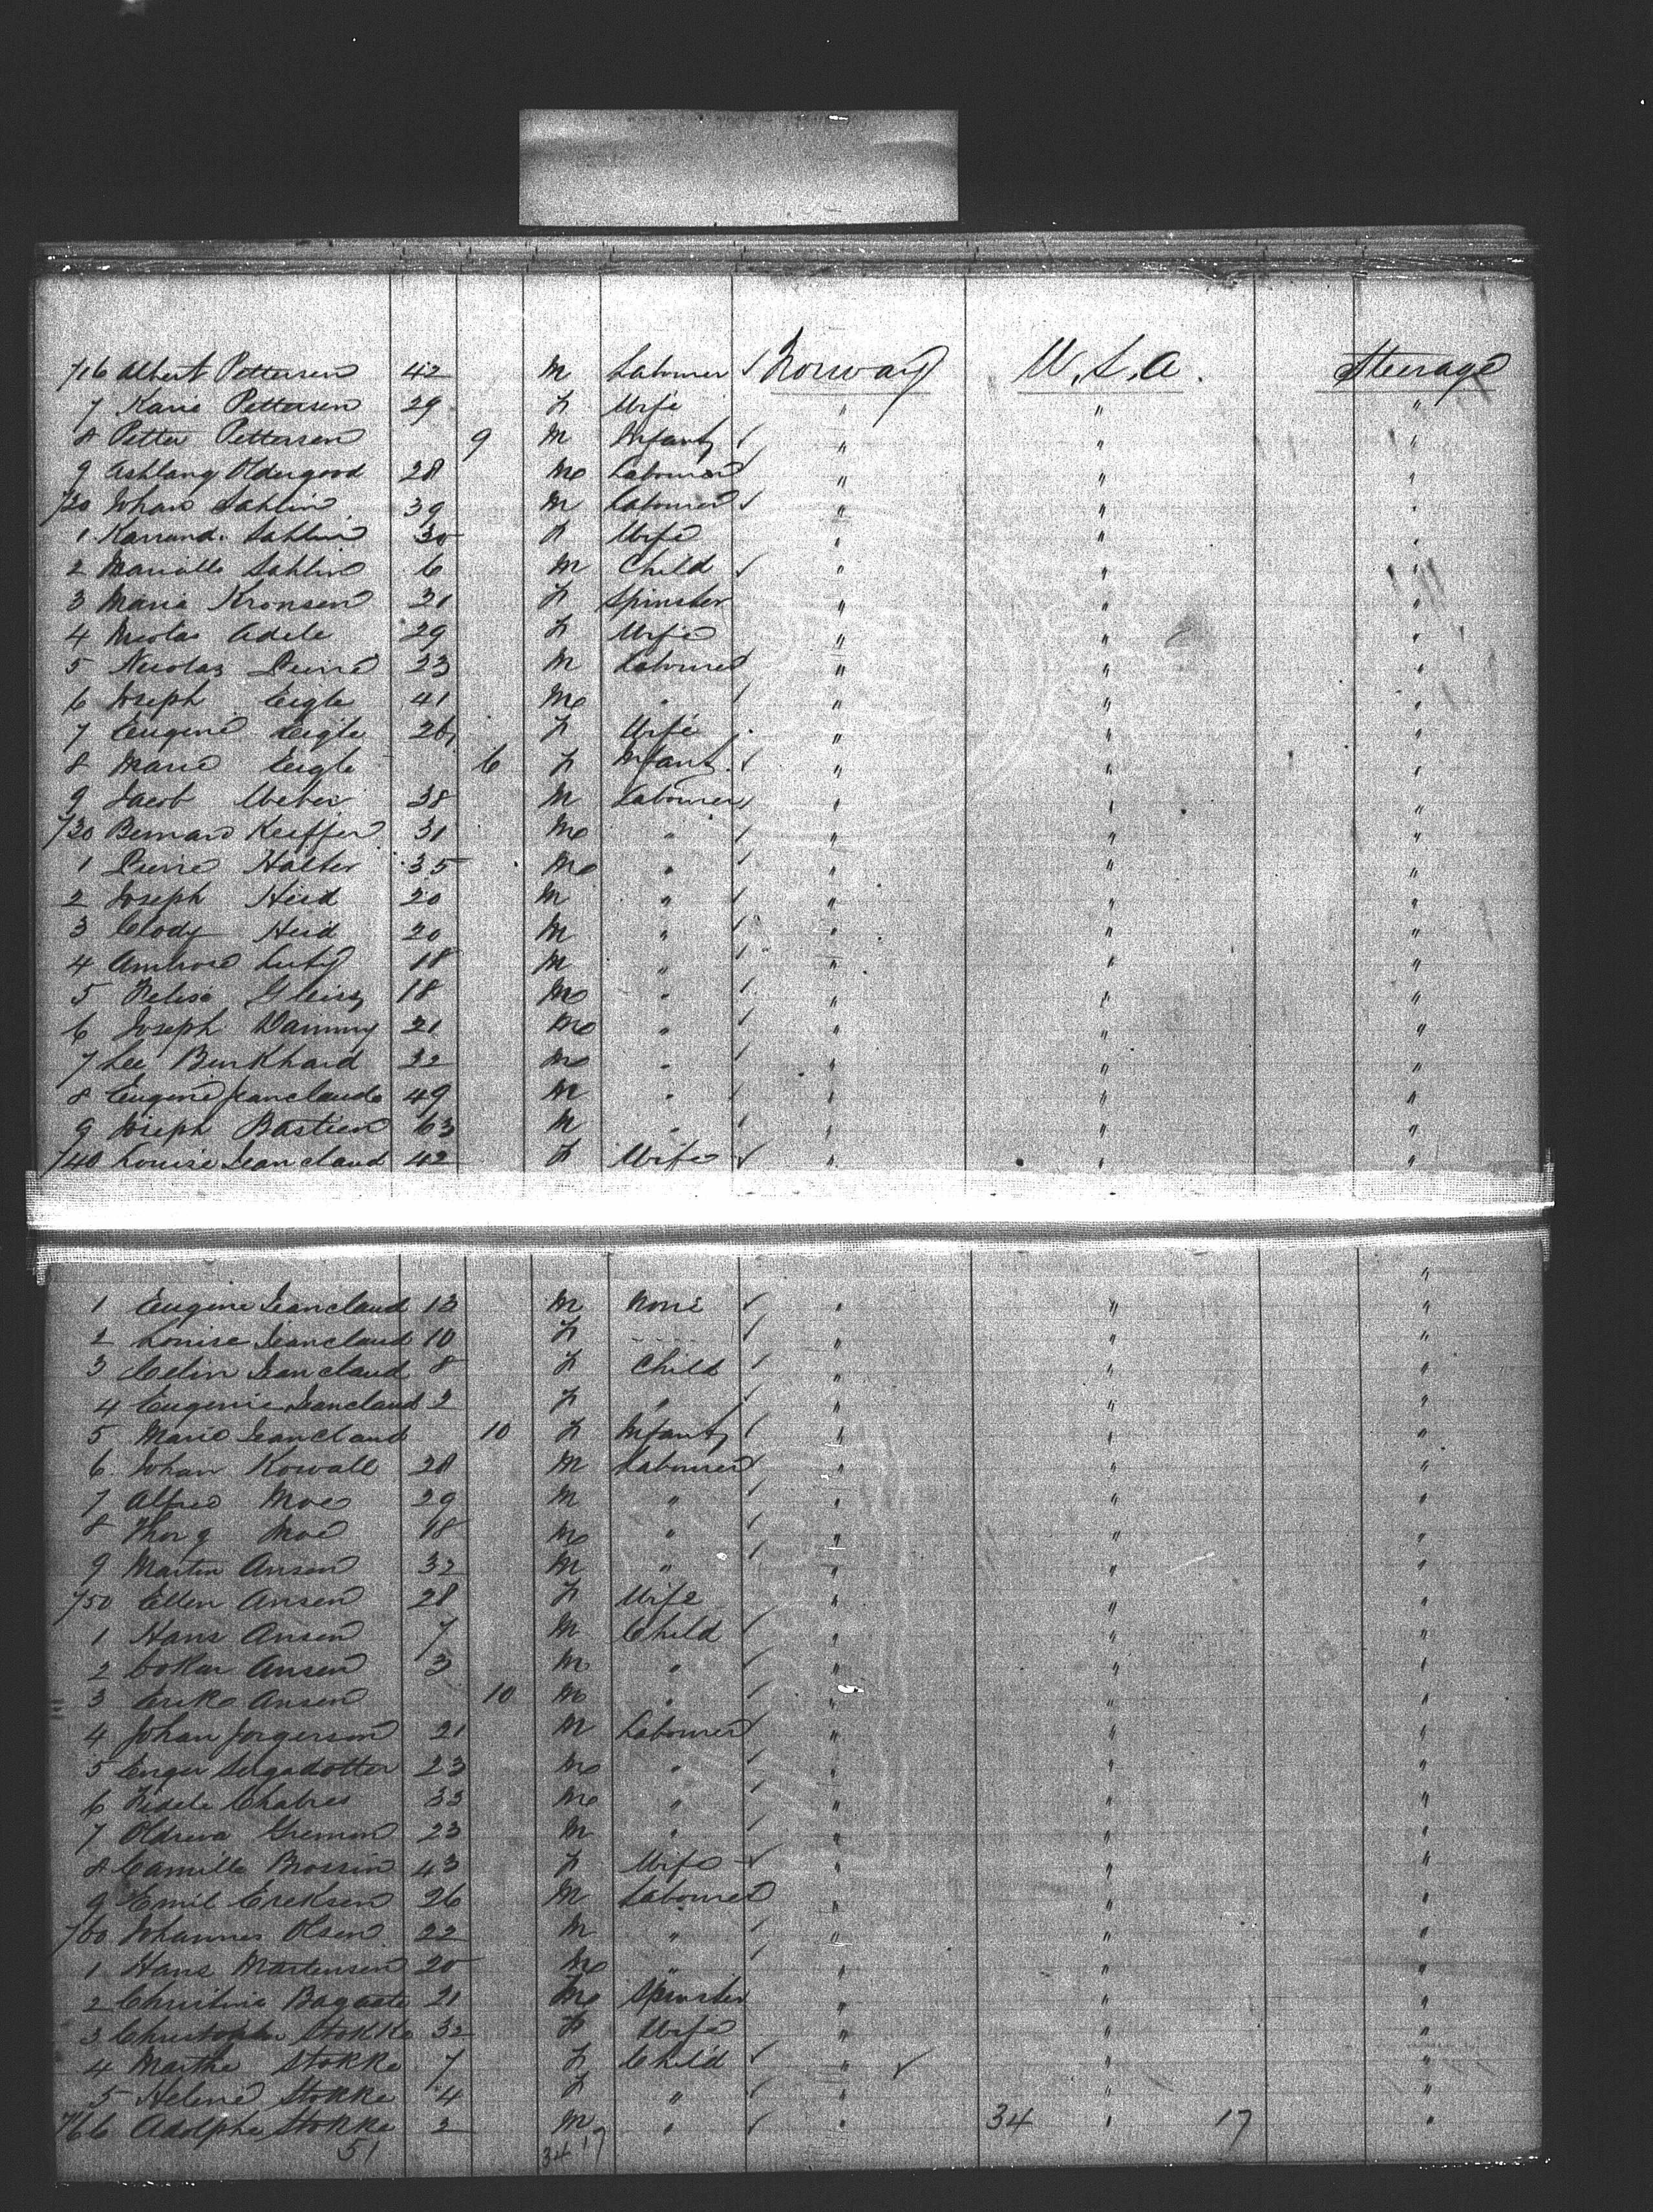 716 Albert Pettersen 42 M Labourer ✓ Norway U.S.A. Steerage
7 Karie Pettersen 29 F Wife " " "
8 Petter Pettersen 9 M Infant ✓ " " "
9 28 M Labourer ✓ " " "
720 Johan Sahlin 39 M Labourer ✓ " " "
1 Sahlin 30 F Wife " " "
2 Sahlin 6 M Child ✓ " " "
3 Maria Kronsen 21 F Spinster " " "
4 Adele 29 F Wife " " "
5 Nicolas Pierre 23 M Laboured " " "
6 Joseph Eigle 41 M " ✓ " " "
7 Eugene Eigle 26 F Wife " " "
8 Marie Eigle 6 F Infant ✓ " " "
9 Jacob Weber 38 M Labourer ✓ " " "
730 Bernard Keiffer 31 M " ✓ " " "
1 Pierre Halter 35 M " ✓ " " "
2 Joseph Heid 20 M " ✓ " " "
3 Clody Heid 20 M " ✓ " " "
4 Ambrose 18 M " ✓ " " "
5 18 M " ✓ " " "
6 Joseph 21 M " ✓ " " "
7 Lee Burkhard 32 M " ✓ " " "
8 Eugene Jeanclaude 49 M " ✓ " " "
9 Joseph Bastien 63 M " ✓ " " "
740 Louise Jeanclaud 42 F Wife ✓ " " "
"
1 Eugene Jeanclaud 12 M None ✓ " " "
2 Louise Jeanclaud 10 F ---- ✓ " " "
3 Celin Jeanclaud 8 F Child ✓ " " "
4 Eugenie Jeanclaud 2 F " ✓ " " "
5 Marie Jeanclaud 10 F Infant ✓ " " "
6 Johan Kowall 28 M Labourer ✓ " " "
7 Alfred Moe 29 M " ✓ " " "
8 Moe 18 M " ✓ " " "
9 Martin Ansen 32 M " ✓ " " "
750 Ellen Ansen 28 F Wife " " "
1 Hans Ansen 7 M Child ✓ " " "
2 Ansen 3 M " ✓ " " "
3 Erik Ansen 10 M " ✓ " " "
4 Johan Jorgerson 21 M Labourer ✓ " " "
5 23 M " ✓ " " "
6 Fidele Chabres 33 M " ✓ " " "
7 23 M " ✓ " " "
8 Camille Brossin 43 F Wife ✓ " " "
9 Emil Ereksen 26 M Laboured " " "
760 Johannes Olsen 22 M " ✓ " " "
1 Hans Martensen 20 M " ✓ " " "
2 Christina 21 M Spinster " " "
3 Stokke 32 F Wife " " "
4 Marthe Stokke 7 F Child ✓ " ✓ " "
5 Helene Stokke 4 F " ✓ " " "
766 Adolphe Stokke 2 M " ✓ " 34 " 17 "
51 34 17